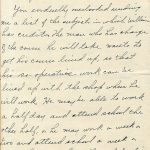 You evidently neglected sending
me a list of the subjects in which William
has credit or the man who has charge
of the course he will take wants to
get his course lined up so that
his co-operative work can be
lined up with the shop when he
will work. He may be able to work
a half day and attend school the
other half, or he may work a week or
two and attend school a week or